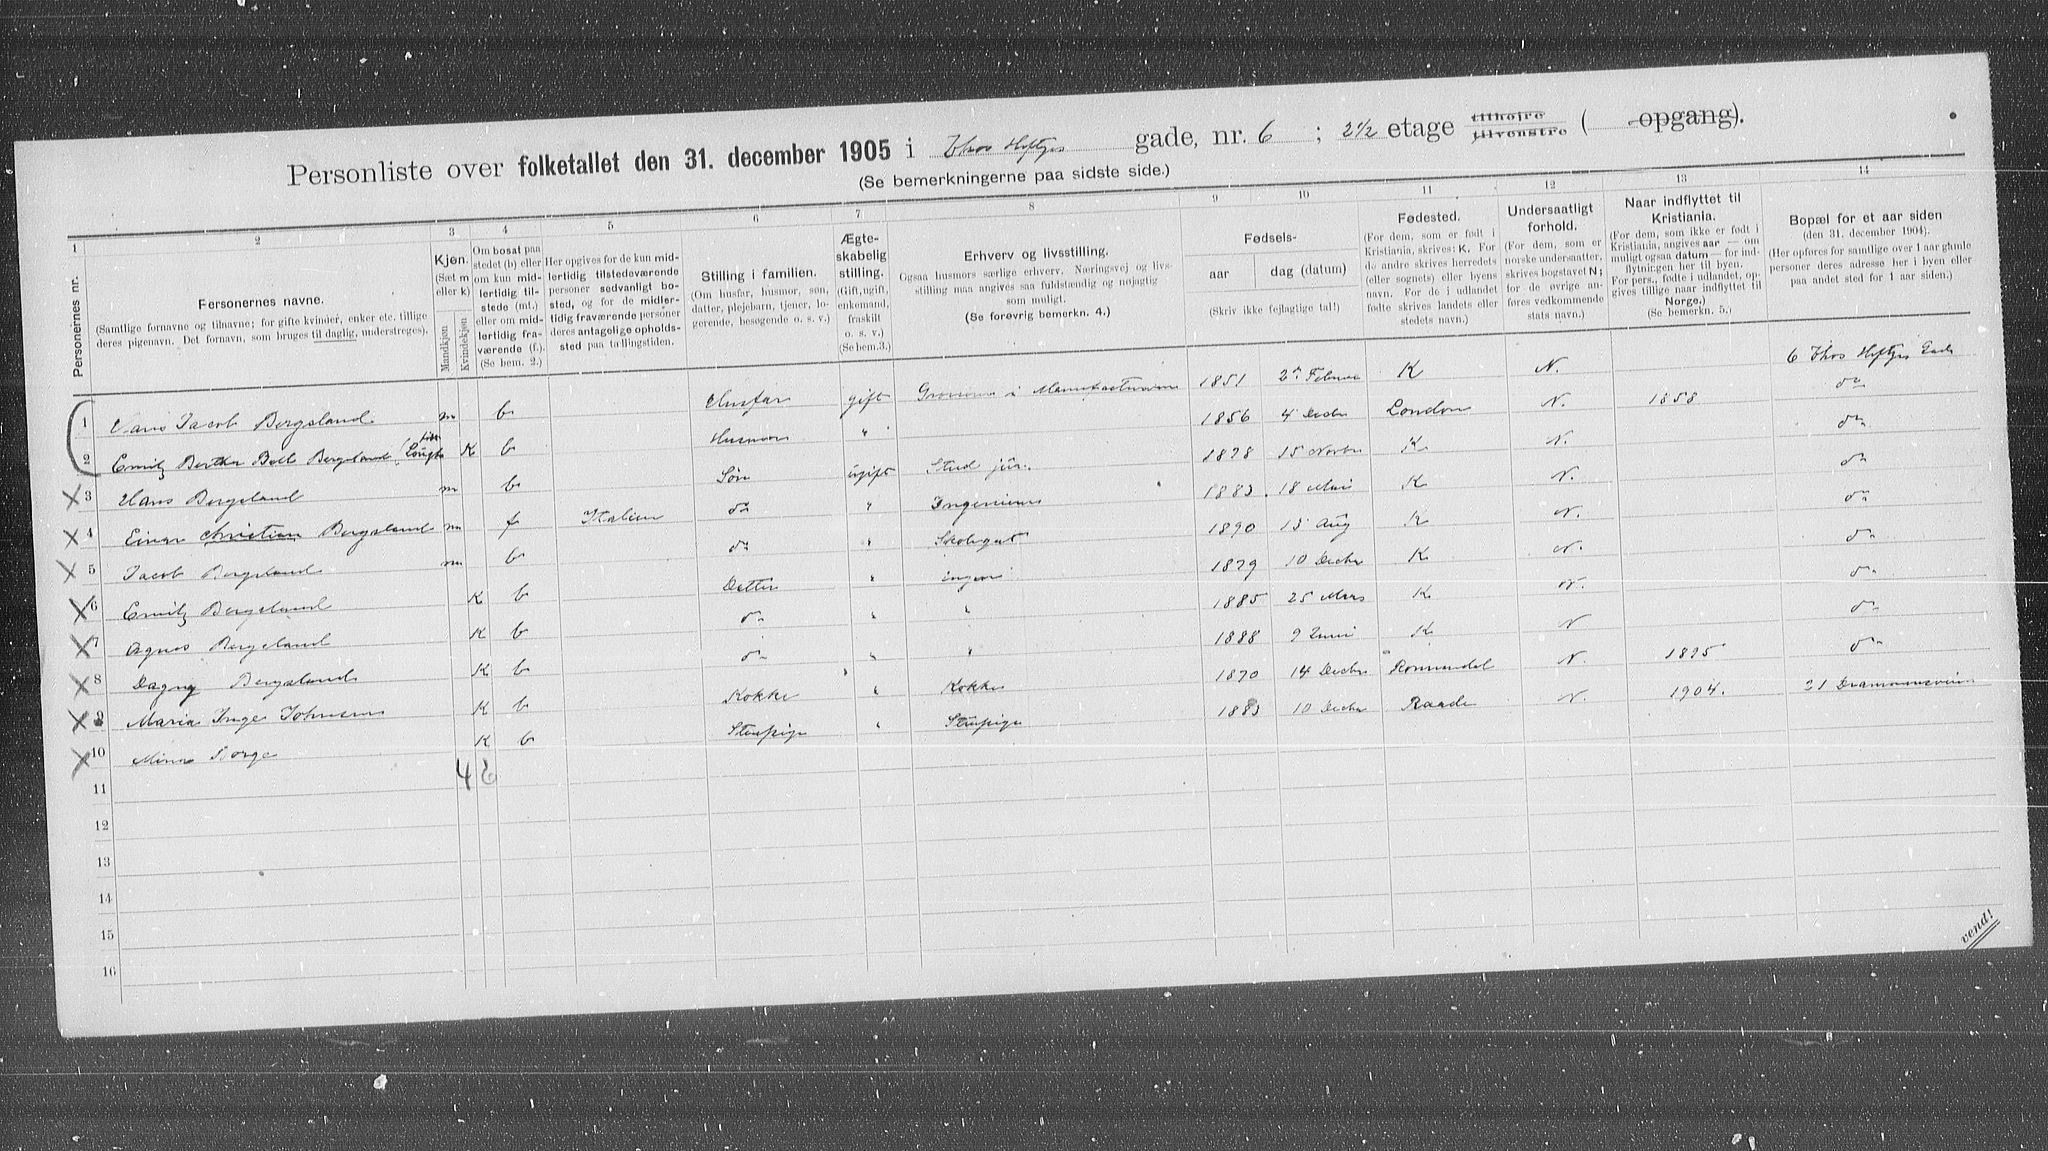 Personliste over folketallet den 31. december 1905 i Thos Heftyes gade, nr. 6 ; 2 1/2 etage tilhøire tilvenstre ( opgang).
(Se bemerkningerne paa sidste side.)
1 2 3 4 5 6 7 8 9 10 11 12 13 14
Personernes nr.
Personernes navne.
(Samtlige fornavne og tilnavne; for gifte kvinder, enker etc. tillige deres pigenavn. Det fornavn, som bruges til daglig, understreges).
Kjøn.
(Sæt m eller k)
Mandkjøn
Kvindekjøn
Om bosat paa stedet (b) eller om kun midlertidig tilstede (mt.) eller om midlertidig fraværende (f.). (Se bem. 2.)
Her opgives for de kun midlertidig tilstedeværende personer sedvanligt bosted, og for de midlertidig fraværende personer deres antagelige opholdssted paa tællingstiden.
Stilling i familien.
(Om husfar, husmor, søn, datter, plejebarn, tjener, logerende, besøgende o. s. v.)
Ægteskabelig stilling.
(Gift, ugift, enkemand, fraskilt o. s. v.)
(Se bem. 3.)
Erhverv og livsstilling.
Ogsaa husmors særlige erhverv. Næringsvej og livsstilling maa angives saa fuldstændig og nøjagtig som muligt.
(Se forøvrig bemerkn. 4.)
Fødsels-
aar
dag (datum)
(Skriv ikke fejlagtige tal!)
Fødested.
(For dem, som er født i Kristiania, skrives: K. For de andre skrives herredets (eller sognets) eller byens navn. For de i udlandet fødte skrives landets eller stedets navn.)
Undersaatligt forhold.
(For dem, som er norske undersaatter, skrives bogstavet N; for de øvrige anføres vedkommende stats navn.)
Naar indflyttet til Kristiania.
(For dem, som ikke er født i Kristiania, angives aar — om muligt ogsaa datum — for indflytningen her til byen. For pers., fødte i udlandet, opgives tillige naar indflyttet til Norge.)
(Se bemerkn. 5.)
Bopæl for et aar siden
(den 31. december 1904).
(Her opføres for samtlige over 1 aar gamle personer deres adresse her i byen eller paa andet sted for 1 aar siden.)
1 Hans Jacob Bergsland m b Husfar gift Grosserer i Manufacturvarer 1851 2 Februar K N. 6 Thos Heftyes Gade
2 Emily Bertha Bell Bergsland K b Husmor " 1856 4 Decbr London N. 1858 do
3 Hans Bergsland m b Søn ugift Stud jur. 1878 15 Novbr K N. do
4 Einar Christian Bergsland m f Italien do " Ingeniør 1883 18 Mai K N. do
5 Jacob Bergsland m b do " Skolegut 1890 13 Aug K N. do
6 Emily Bergsland K b Datter " ingen 1879 10 Decbr K N. do
7 Agnes Bergsland K b do " " 1885 25 Mars K N. do
8 Dagny Bergsland K b do " " 1888 9 Juni K N do
9 Maria Inge Johnsen K b Kokke " Kokke 1870 14 Decbr Romsdal N. 1895 do
10 Minna Borge K b Stuepige " Stuepige 1883 10 Decbr Raade N. 1904. 21 Drammensveien
4 6
11
12
13
14
15
16
vend!